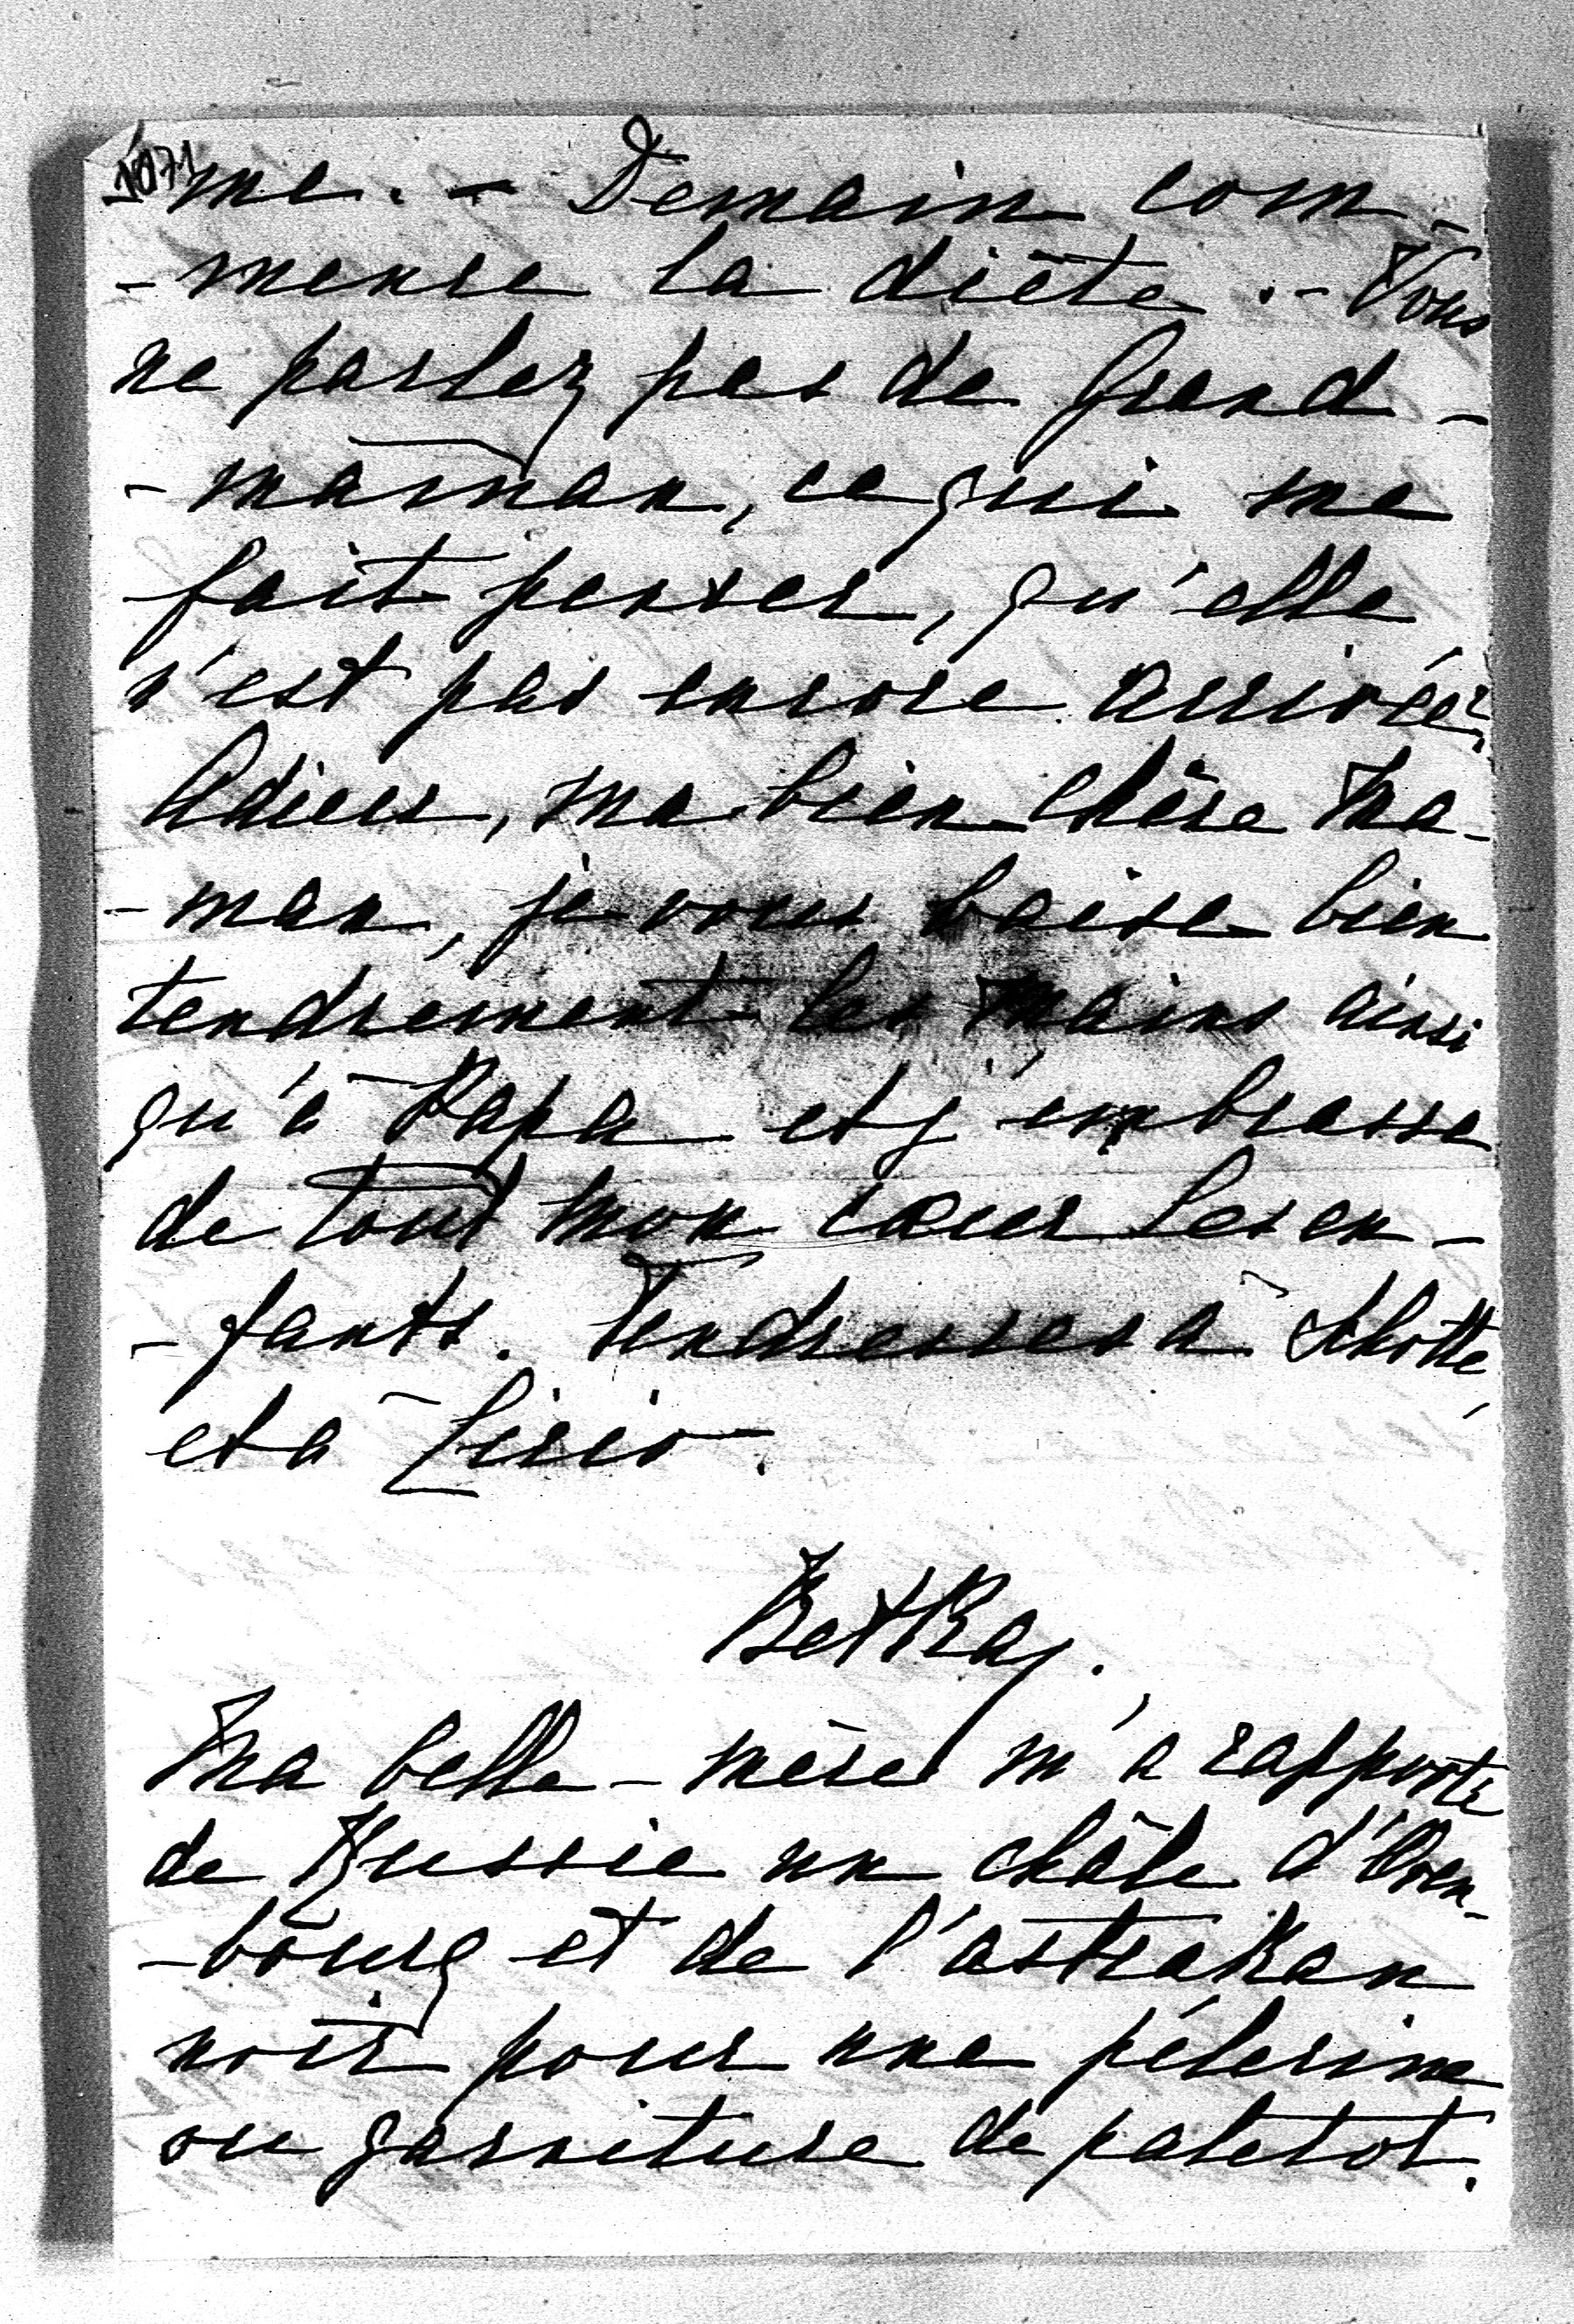 1071
me. - Demain com-
-mence la diète. - Vous
ne parlez pas de Grand-
-maman, ce qui me
fait penser, qu'elle
n'est pas encore arrivée?
Adieu, ma bien chère Ma-
-man, je vous baise bien
tendrement les mains ainsi
qu'à Papa et j'embrasse
de tout mon cœur les en-
-fants. Tendresses à
et à
Ma belle-mère m'a rapporté
de Russie un châle d'Oren-
-bourg et de l'astrakan
noir pour une pélerine
ou garniture de paletot.